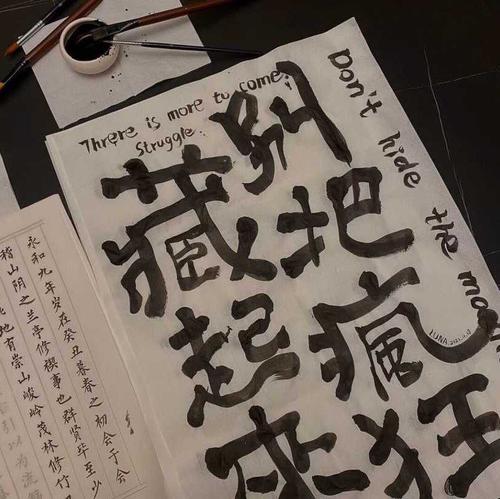 Threre is more to come.
Struggle.
Don't hide the
别把瘋狂
藏起来
LUNA
永和九年岁在癸丑暮春之初会于会
稽山阴之兰亭修禊事也群贤毕至少
地有崇山峻岭茂林修竹
引以为流